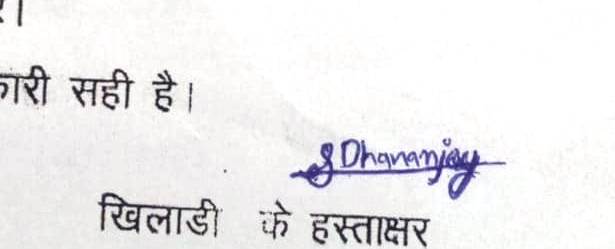 कारी सही है।
S Dhananjay
खिलाडी के हस्ताक्षर